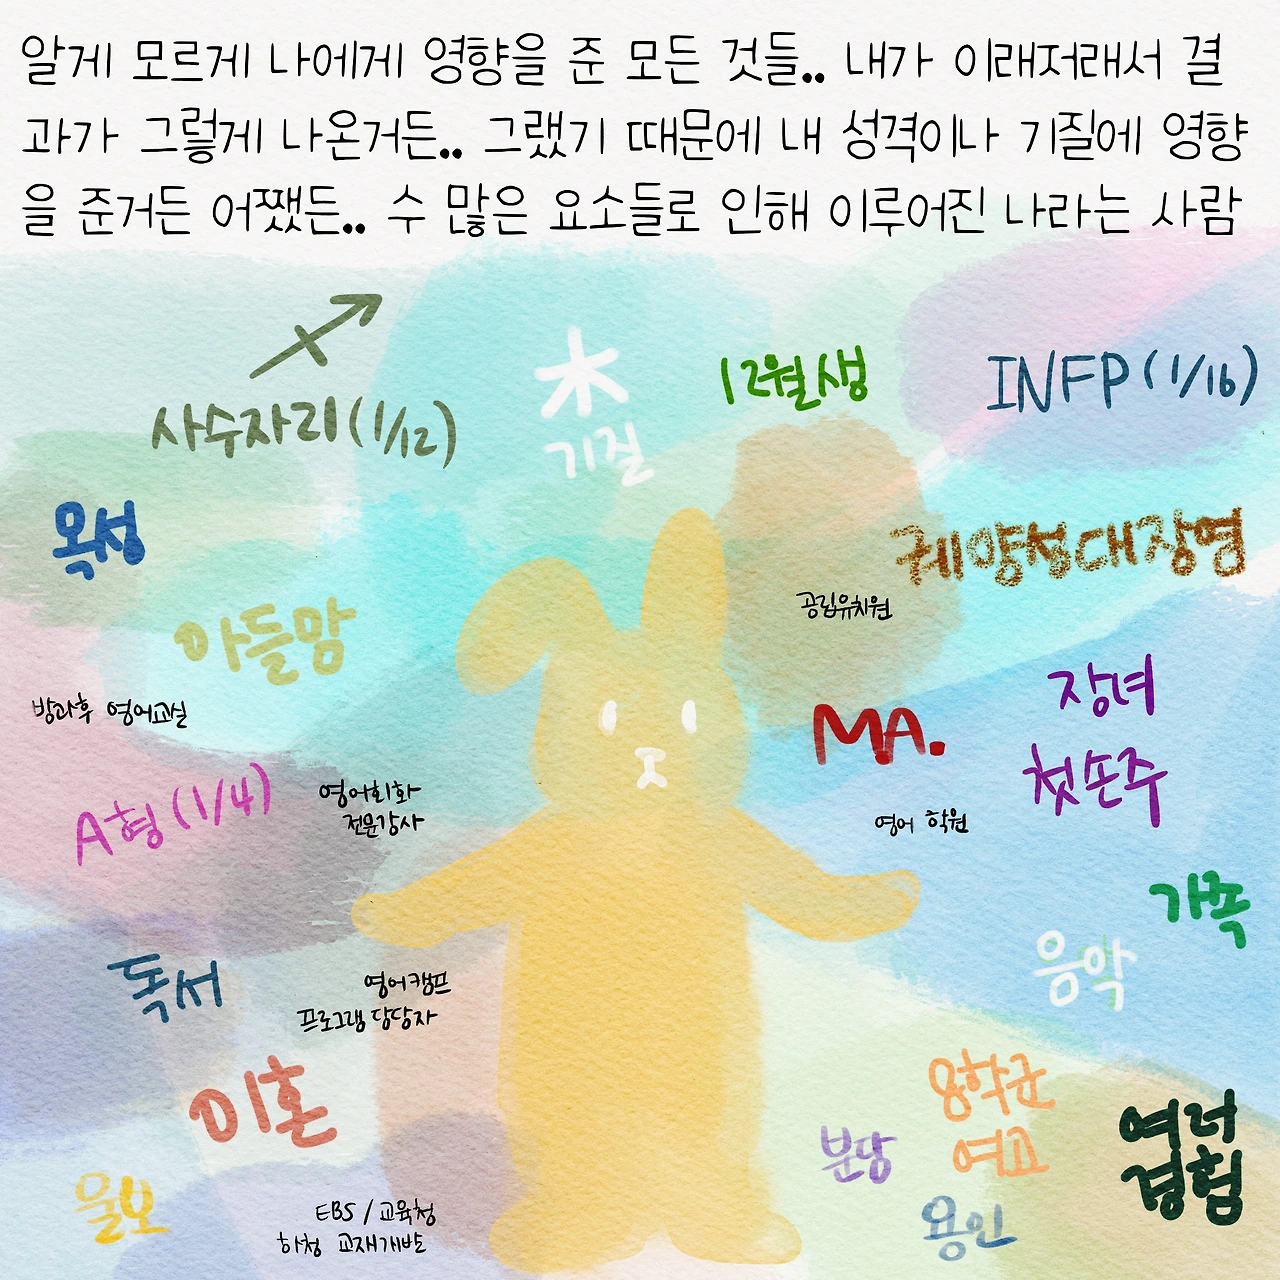 알게 모르게 나에게 영향을 준 모든 것들.. 내가 이래저래서 결
과가 그렇게 나온거든.. 그랬기 때문에 내 성격이나 기질에 영향
을 준거든 어쨌든.. 수 많은 요소들로 인해 이루어진 나라는 사람
사수자리(1/12)
木
기질
12월생
INFP(1/16)
목성
궤양성대장염
공립유치원
아들맘
방과후 영어교실
장녀
첫손주
M.A.
A형(1/4)
영어회화
전문강사
영어 학원
가족
음악
독서
영어캠프
프로그램 담당자
이혼
8학군
여고
분당
용인
여러
경험
울보
EBS / 교육청
하청 교재개발